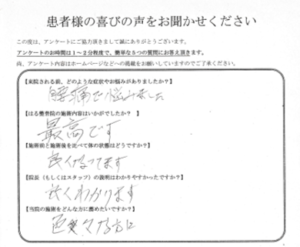 患者様の喜びの声をお聞かせください
この度は、アンケートにご協力頂きまして誠にありがとうございます。
アンケートのお時間は1~2分程度で、簡単な5つの質問にお答え頂きます。
尚、アンケート内容はホームページなどへの掲載をお願いしていますのでご了承ください。
【来院される前、どのような症状やお悩みがありましたか？】
腰痛で悩みました
【はる整骨院の施術内容はいかがでしたか？】
最高です
【施術前と施術後を比べて体の状態はどうですか？】
良くなってます
【院長（もしくはスタッフ）の説明はわかりやすかったですか？】
よくわかります
【当院の施術をどんな方に薦めたいですか？】
色々な方に